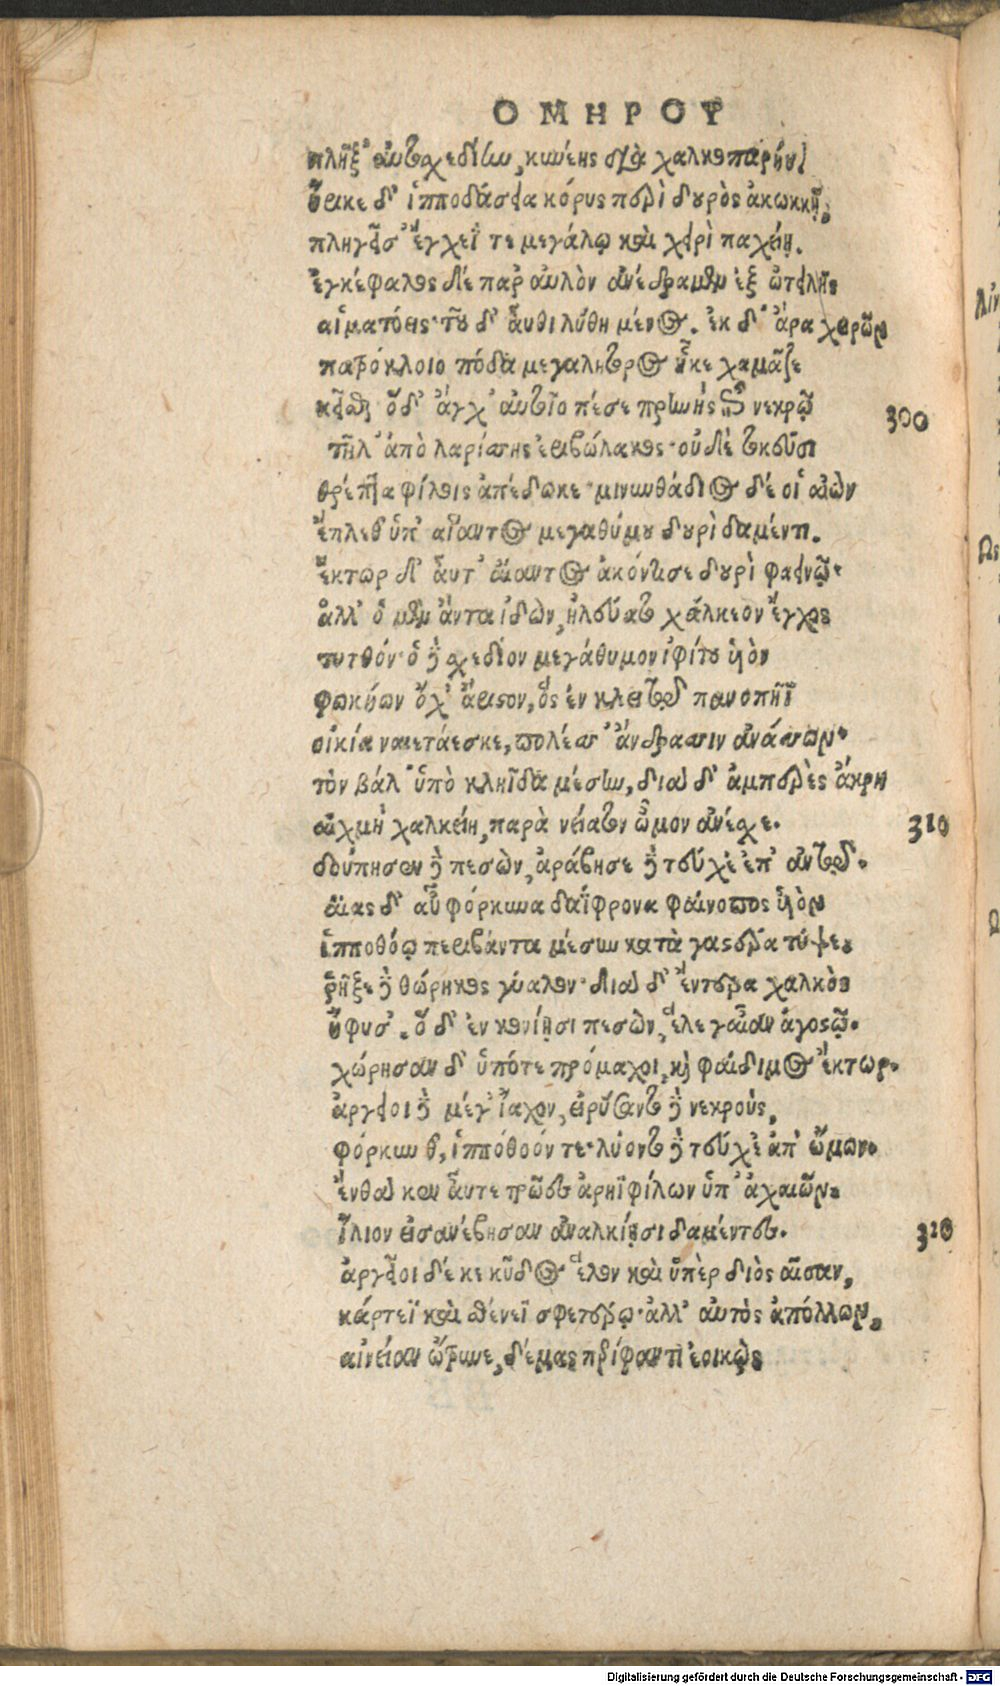 ΟΜΗΡΟΥ
πλῆξ᾽ αὐτοσχεδίην, κυνέης διὰ χαλκοπαρήου
ἤρικε δ᾽ ἱπποδάσεια κόρυς περὶ δουρὸς ἀκωκῇ,
πληγεῖσ᾽ ἔγχεΐ τε μεγάλῳ καὶ χειρὶ παχείῃ.
ἐγκέφαλος δὲ παρ᾽ αὐλὸν ἀνέδραμεν ἐξ ὠτειλῆς
αἱματόεις· τοῦ δ᾽ αὖθι λύθη μένος. ἐκ δ᾽ ἄρα χειρῶν
πατρόκλοιο πόδα μεγαλήτορος ἧκε χαμᾶζε
κεῖσθαι· ὅ δ᾽ ἄγχ᾽ αὐτοῖο πέσε πρηνὴς ἐπὶ νεκρῷ
τῆλ᾽ ἀπὸ λαρίσσης ἐριβώλακος· οὐδὲ τοκεῦσι
θρέπτρα φίλοις ἀπέδωκε· μινυνθάδιος δέ οἱ αἰὼν
ἔπλεθ᾽ ὑπ᾽ αἴαντος μεγαθύμου δουρὶ δαμέντι.
ἕκτωρ δ᾽ αὖτ᾽ αἴαντος ἀκόντισε δουρὶ φαεινῷ·
ἀλλ᾽ ὁ μὲν ἄντα ἰδὼν, ἠλεύατο χάλκεον ἔγχος
τυτθόν· ὁ δὲ σχεδίον μεγάθυμον ἰφίτου υἱὸν
φωκήων ὄχ᾽ ἄριστον, ὃς ἐν κλειτῷ πανοπῆϊ
οἰκία ναιετάεσκε, πολέσσ᾽ ἄνδρασσιν ἀνάσσων·
τὸν βάλ᾽ ὑπὸ κληῖδα μέσην, διὰ δ᾽ ἀμπερὲς ἄκρη
αἰχμὴ χαλκείη, παρὰ νείατον ὦμον ἀνέσχε.
δούπησεν δὲ πεσὼν, ἀράβησε δὲ τεύχε᾽ ἐπ᾽ αὐτῷ.
αἴας δ᾽ αὖ φόρκυνα δαΐφρονα φαίνοπος υἱὸν
ἱπποθόῳ περιβάντα μέσην κατὰ γαστέρα τύψεν
ῥῆξε δὲ θώρηκος γύαλον· διὰ δ᾽ ἔντερα χαλκὸς
ἤφυσ᾽. ὅ δ᾽ ἐν κονίῃσι πεσὼν, ἕλε γαῖαν ἀγοστῷ.
χώρησαν δ᾽ ὑπό τε πρόμαχοι, καὶ φαίδιμος ἕκτωρ.
ἀργεῖοι δὲ μέγ᾽ ἴαχον, εἰρύσαντο δὲ νεκροὺς,
φόρκυν θ᾽, ἱππόθοόν τε· λύοντο δὲ τεύχε᾽ ἀπ᾽ ὤμων.
ἔνθα κεν αὖτε τρῶες ἀρηϊφίλων ὑπ᾽ ἀχαιῶν
ἴλιον εἰσανέβησαν ἀναλκίῃσι δαμέντες.
ἀργεῖοι δέ κε κῦδος ἕλον καὶ ὑπὲρ διὸς αἶσαν,
κάρτεϊ καὶ σθένεϊ σφετέρῳ· ἀλλ᾽ αὐτὸς ἀπόλλων,
αἰνείαν ὤτρυνε, δέμας περίφαντι ἐοικὼς
300
310
310
Digitalisierung gefördert durch die Deutsche Forschungsgemeinschaft - DFG